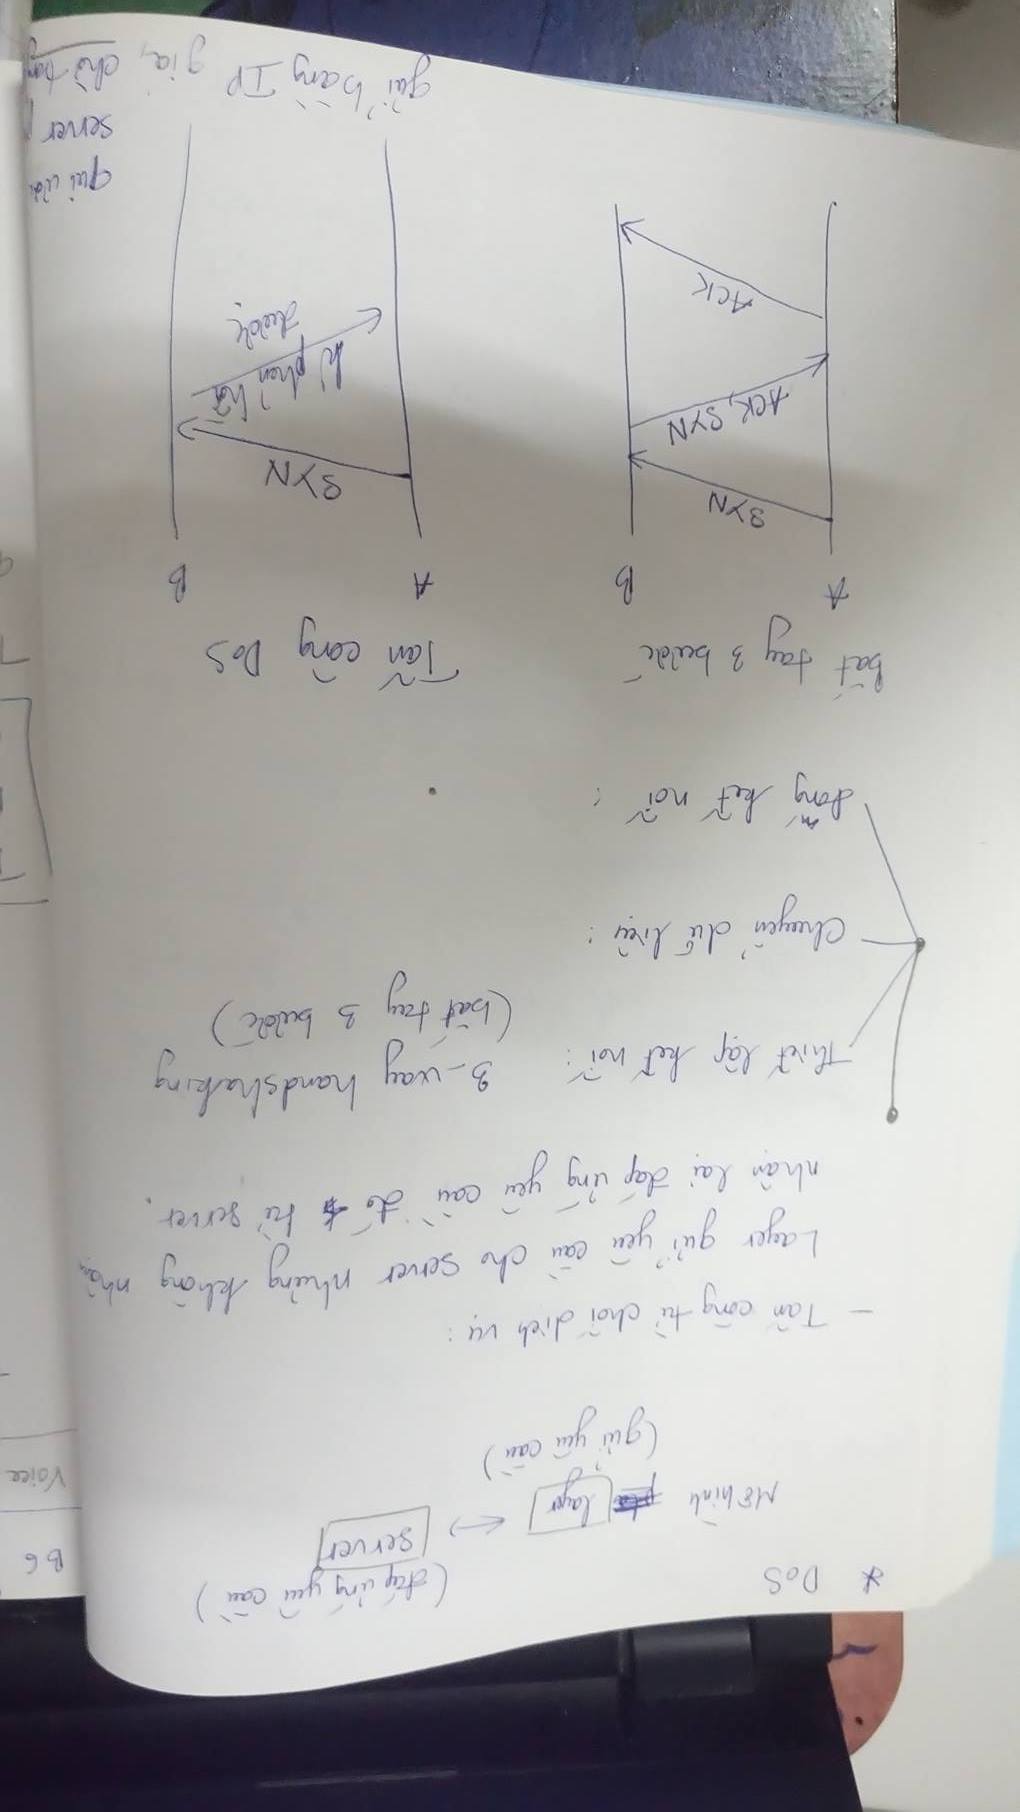 * DoS
(đáp ứng yêu cầu)
Mô hình layer ↔ server
(gửi yêu cầu)
- Tấn công từ chối dịch vụ:
Layer gửi yêu cầu cho server nhưng không nhận
nhận lại đáp ứng yêu cầu đó từ server.
Thiết lập kết nối: 3-way handshaking
(bắt tay 3 bước)
Chuyển dữ liệu:
đóng kết nối:
Bắt tay 3 bước
Tấn công DoS
A B
SYN
ACK, SYN
ACK
A B
SYN
k phản hồi
được
gửi bằng IP giả, chờ trong
qui ước
server
B6
Voice